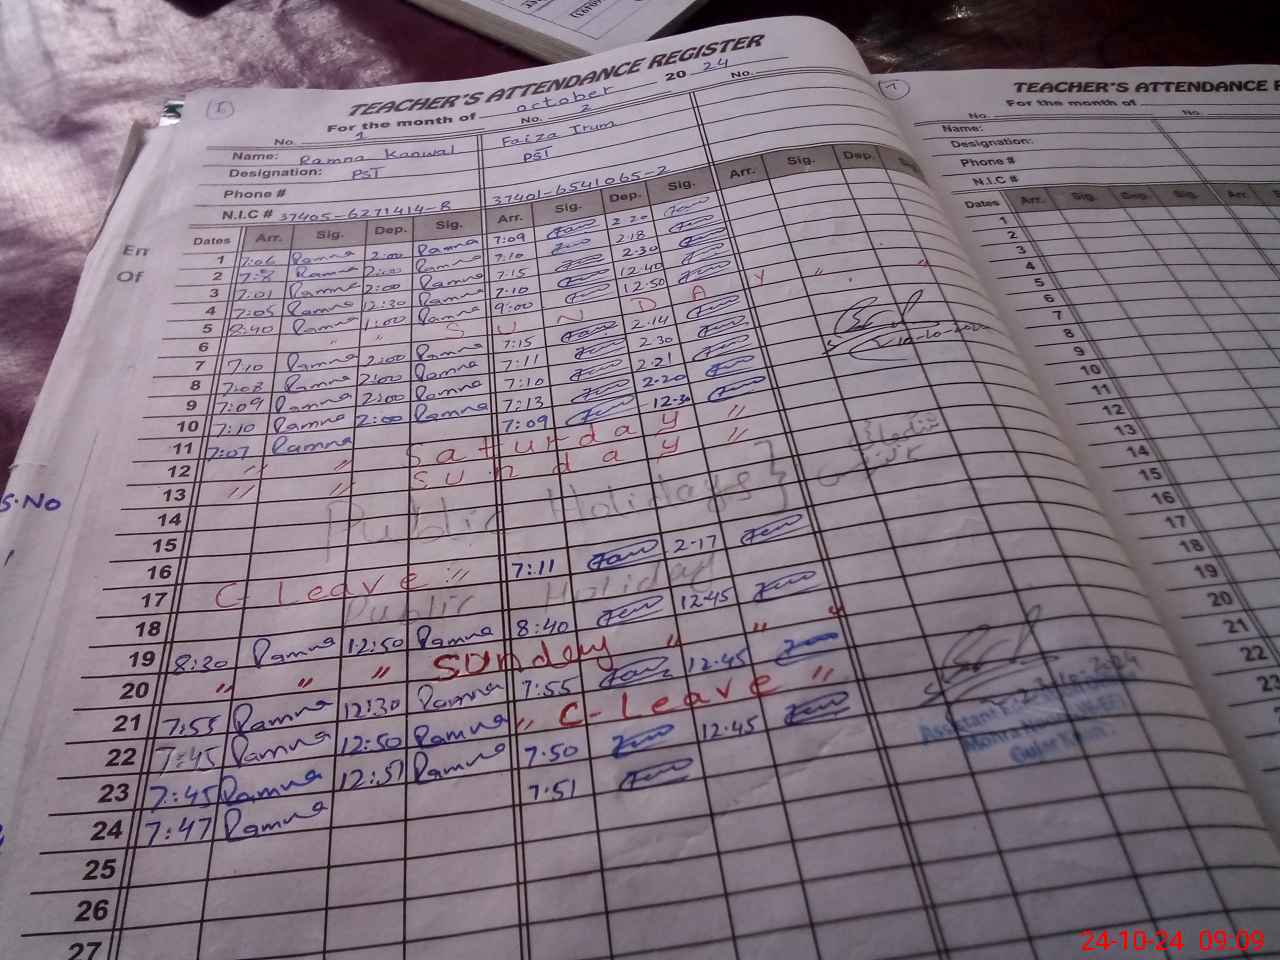 TEACHER'S ATTENDANCE REGISTER
For the month of october 20 24
No. 1 No. 2 No.
Name: Ramna Kanwal Faiza Irum
Designation: PST PST
Phone #
N.I.C # 37405-6271414-8 37401-6541065-2
Dates Arr. Sig. Dep. Sig. Arr. Sig. Dep. Sig. Arr. Sig. Dep. Sig.
1 7:06 Ramna 2:00 Ramna 7:09 2.20
2 Ramna 2:00 Ramna 7:10 2.18
3 7:01 Ramna 2:00 Ramna 7:15 2.30
4 7:05 Ramna 12:30 Ramna 7:10 12.40
5 8:40 Ramna 1:00 Ramna 9:00 12.50
6 " " S U N D A Y " "
7 7:10 Ramna 2:00 Ramna 7:15 2.14
8 7:08 Ramna 2:00 Ramna 7:11 2.30
9 7:09 Ramna 2:00 Ramna 7:10 2.21
10 7:10 Ramna 2:00 Ramna 7:13 2.20
11 7:07 Ramna 7:09 12.30
12 " " Saturday "
13 " " Sunday "
14 Public Holidays }
15
16
17 C-Leave " 7:11 2.17
18 Public Holiday
19 8:30 Ramna 12:50 Ramna 8:40 12.45
20 " " " Sunday " " "
21 7:55 Ramna 12:30 Ramna 7:55 12.45
22 7:45 Ramna 12:50 Ramna " C-Leave "
23 7:45 Ramna 12:51 Ramna 7.50 12.45
24 7:47 Ramna 7.51
25
26
27
Em
Of
S.No
TEACHER'S ATTENDANCE R
For the month of
No. No.
Name:
Designation:
Phone #
N.I.C #
Dates Arr. Sig. Dep. Sig. Arr.
1
2
3
4
5
6
7
8
9
10
11
12
13
14
15
16
17
18
19
20
21
22
23
24-10-24 09:09